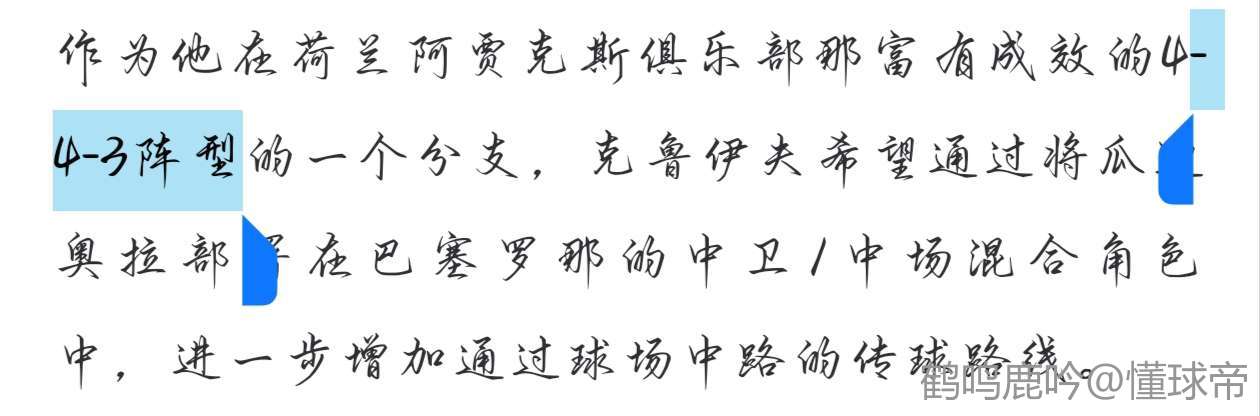 作为他在荷兰阿贾克斯俱乐部那富有成效的4-
4-3阵型的一个分支，克鲁伊夫希望通过将瓜
奥拉部在巴塞罗那的中卫/中场混合角色
中，进一步增加通过球场中路的传球路线。
鹤鸣鹿吟@懂球帝